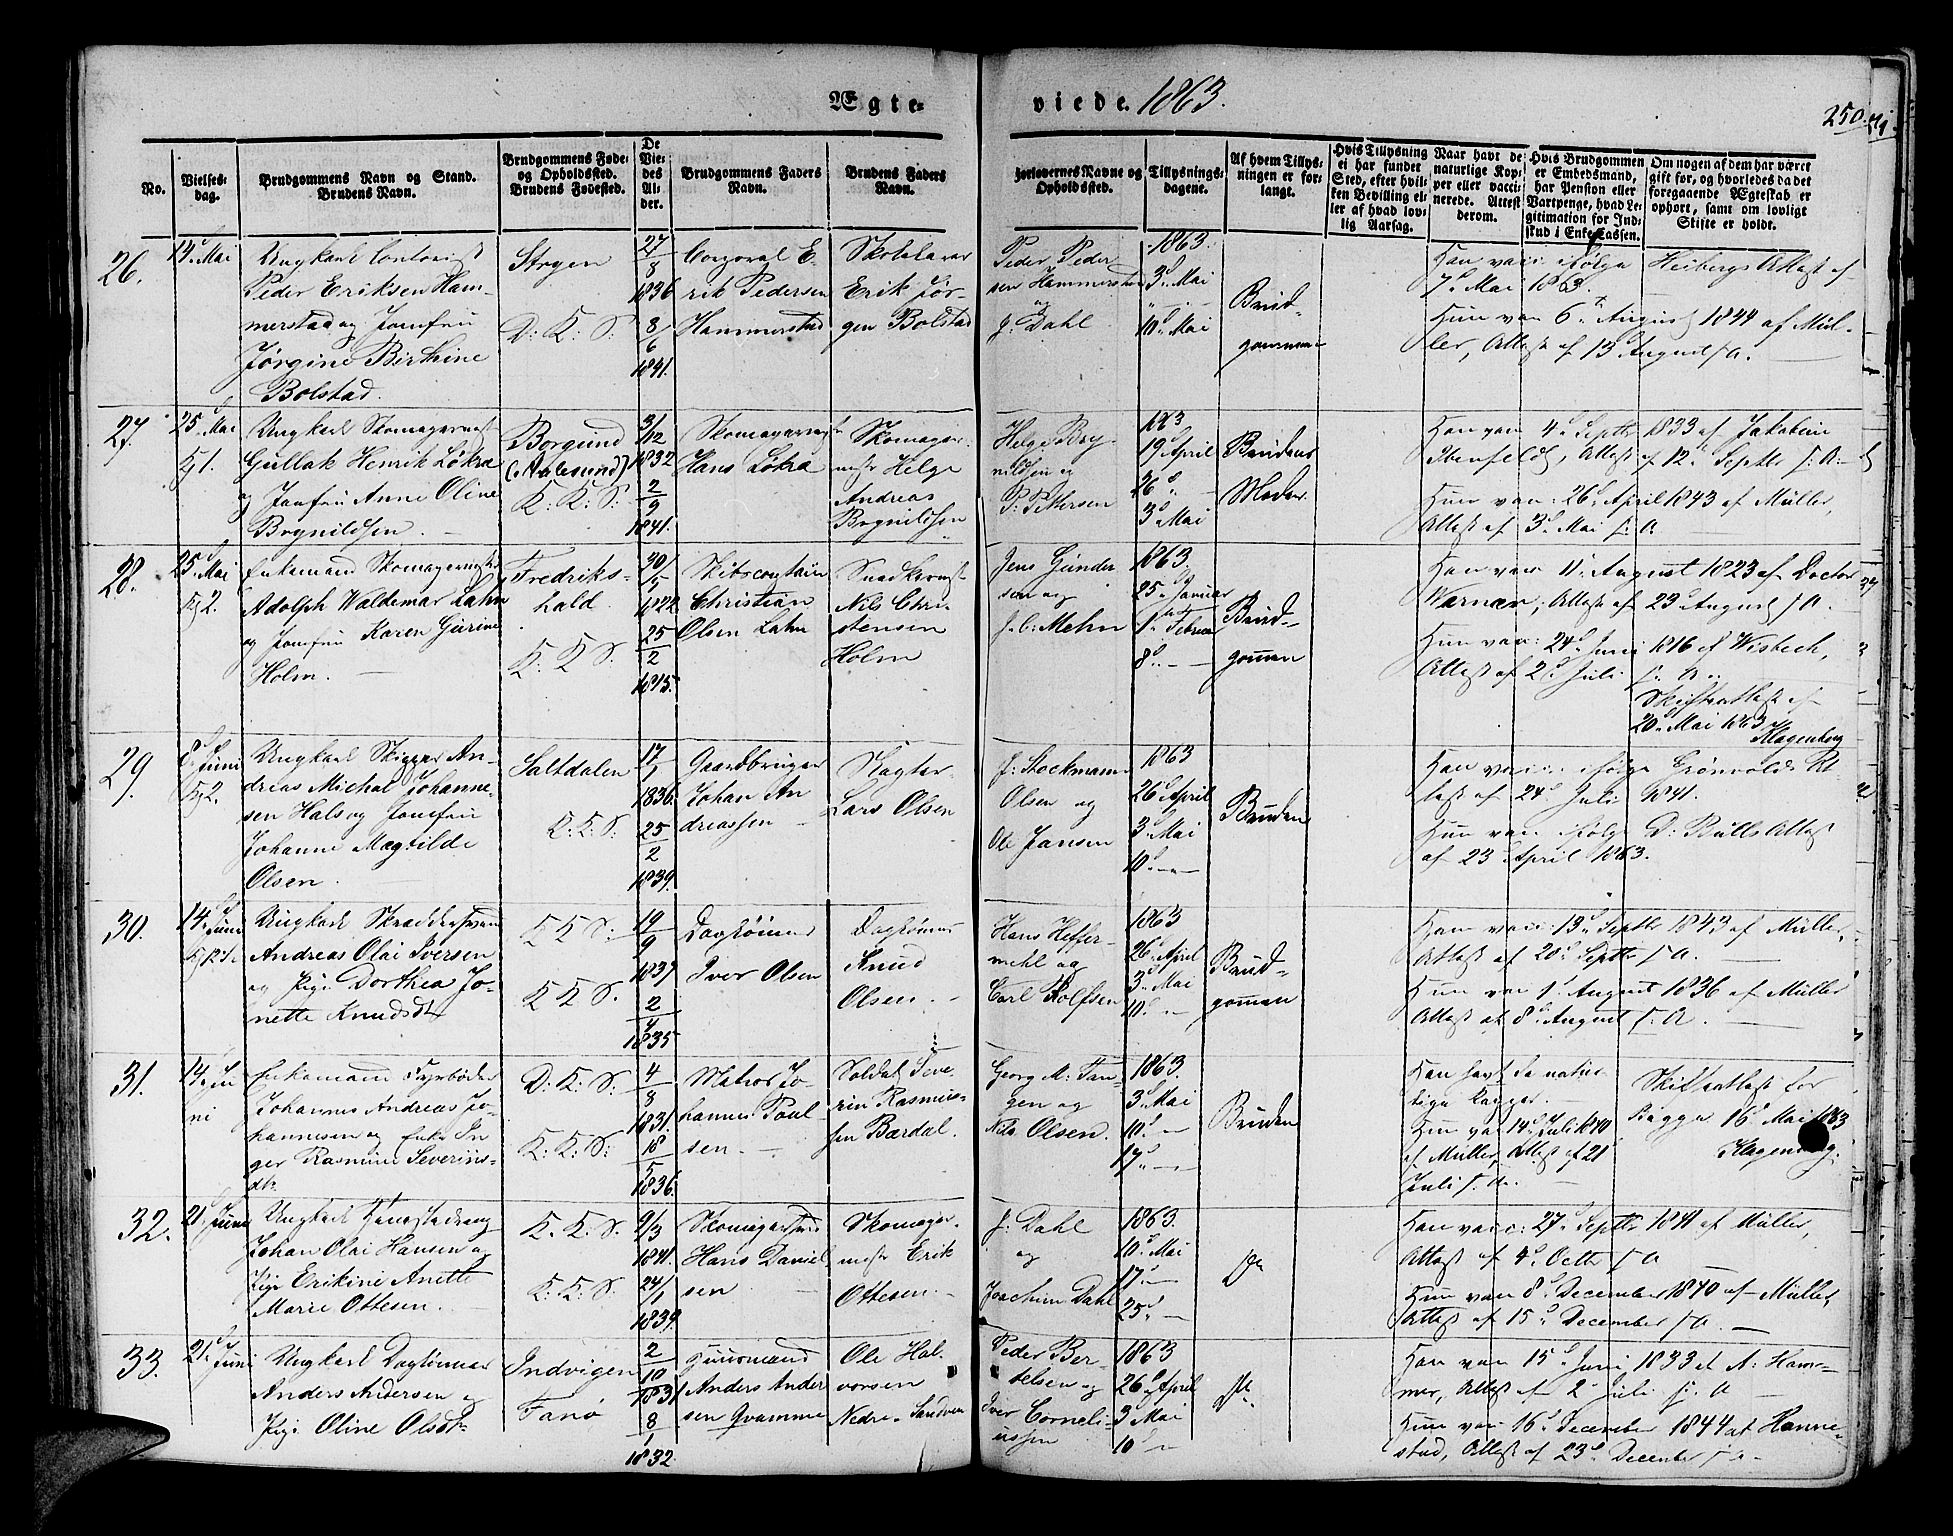 Ægte-
viede. 1863.
250.
No.
Vielses-
dag.
Brudgommens Navn og Stand.
Brudens Navn.
Brudgommens Føde-
og Opholdssted.
Brudens Fødested.
De
Vie-
des
Al-
der.
Brudgommens Faders
Navn.
Brudens Faders
Navn.
Forlovernes Navne og
Opholdssted.
Tillysnings-
dagene.
Af hvem Tillys-
ningen er for-
langt.
Hvis Tillysning
ei har fundet
Sted, efter hvil-
ken Bevilling el-
ler af hvad lov-
lig Aarsag.
Naar havt de
naturlige Kop-
per eller vacci-
nerede. Attest
derom.
Hvis Brudgommen
er Embedsmand,
har Pension eller
Vartpenge, hvad Le-
gitimation for Ind-
skud i Enke-Cassen.
Om nogen af dem har været
gift før, og hvorledes da det
foregaaende Ægteskab er
ophørt, samt om lovligt
Skifte er holdt.
26.
14d Mai
Ungkarl Contorist
Peder Eriksen Ham-
merstad og Jomfru
Jørgine Birthine
Bolstad.
Stryen
D: K: S:
27/8
1836
8/6
1841.
Corporal E-
rik Pedersen
Hammerstad
Skolelærer
Erik Jør-
gen Bolstad
Peder Peder
sen Hammerstad
og
J. Dahl
1863.
3d Mai
10d Mai
Brud-
gommen
Han vacc: ifølge Heibergs Attest af
7d Mai 1863.
Hun var 6te August 1844 af Mül-
ler, Attest af 13 August s. A.
27.
25d Mai
Kj 1.
Ungkarl Skomagermst
Gullak Henrik Løkra
og Jomfru Anne Oline
Brynildsen.
Borgund
(Aalesund)
K: K: S:
3/12
1832
2/9
1841.
Skomagermst
Hans Løkra
Skomager-
mstr Helge
Andreas
Brynildsen
Helge Bry-
nildsen og
P: Petersen
1863
19d April
26d
3d Mai
Brudens
Moder
Han vac: 4d Septbr 1833 af Jakobine
Ibenfeldt, Attest af 12d Septbr s: A:
Hun vac: 26d April 1843 af Müller,
Attest af 3d Mai s: A
28.
25d Mai
Kj 2.
Enkemand Skomagermstr
Adolph Waldemar Lahn
og Jomfru Karen Gurine
Holm.
Fredriks-
hald.
K: K: S:
1822.
25/2
1845.
Skibscaptain
Christian
Olsen Lahn
Snedkermst
Nils Chri-
stensen
Holm
Jens Gunder
sen og
J. C. Mehn
1863.
25d Januar
1ste Februar
8d
Brud-
gommen
Han var: 11te August 1823 af Doctor
Warnæs, Attest af 23d August s A.
Hun vac: 24d Juni 1846 af Wisbech,
Attest af 2d Juli s: A.
Skifteattest af
20d Mai 1863
Klagenberg
29.
8d Juni
Kj 2.
Ungkarl Skipper An-
dreas Michal Johanne-
sen Hals og Jomfru
Johanne Magtilde
Olsen.
Saltdalen
K: K: S:
17/1
1836.
25/2
1839.
Gaardbruger
Johan An
dreassen
Lars Olsen
J: Stockmann
Olsen og
Ole Jansen
1863
26d April
3d Mai
10d
Bruden
Han vacc: ifølge Grønvolds At-
test af 24d Juli 1841.
Hun vac: ifølge D: Rülls Attest
af 23d April 1863.
30.
14d Juni
Ungkarl Skræddersvend
Andreas Olai Iversen
og Pige Dorthea Jo-
nette Knudsdtr
K K S:
K K S.
19/9
1837
2/4
1835
Daglønner
Iver Olsen
Daglønner
Knud
Olsen.
Hans Heffer-
mehl og
Carl Rolfsen
1863
26d April
3d Mai
10d
Brud-
gommen
Han vac: 13d Septbr 1843 af Müller,
Attest af 20d Septbr s. A.
Hun var 1d August 1836 af Müller
Attest af 8d August s. A.
31.
14d Ju
ni
Enkemand Fyrbøder
Johannes Andreas Jo-
hannesen og Enke In
ger Rasmine Severins-
dtr.
D: K: S:
K: K: S:
4/8
1831.
18/5
1836.
Matros Jo-
hannes Poul-
sen.
Soldat Seve-
rin Rasmus-
sen Bærdal.
Georg M: Fan-
gen og
Nils Olsen.
1863.
3d Mai
10d
17d
Bruden
Han havt de natur-
lige Kopper.
Hun vac 14d Juli 1840
af Müller, Attest af 21
Juli s. A.
Skifteattest for
Begge 16d Mai 1863
Klagenberg.
32.
21d Juni
Ungkarl Tjenestedreng
Johan Olai Hansen og
Pige Erikine Anette
Marie Ottesen.
K. K: S.
K: K: S.
9/3
1841.
24/1
1839.
Skomagersvend
Hans Daniel
sen
Skomager-
mstr Erik
Ottesen.
J: Dahl
og
Joachim Dahl
1863.
10d Mai
17d
25d
Do
Han vacc: 27d Septbr 1841 af Müller,
Attest af 4d Octbr s A
Hun var 8d December 1840 af Müller,
Attest af 15d December s A.
33.
21d Juni
Ungkarl Daglønner
Anders Andersen og
Pige Oline Olsdtr
Indvigen
Fanø
2/10
1831
8/1
1832.
Huusmand
Anders Ander
sen Qvamme
Ole Hal-
vorsen
Nedre-Sandven
Peder Ber-
telsen og
Iver Corneli-
ussen
1863
26d April
3 Mai
10d
Do
Han var 15d Juni 1833 af A: Ham-
mer, Attest af 2d Juli s: A
Hun var 16d December 1844 af Hanne-
stad, Attest af 23d December s A